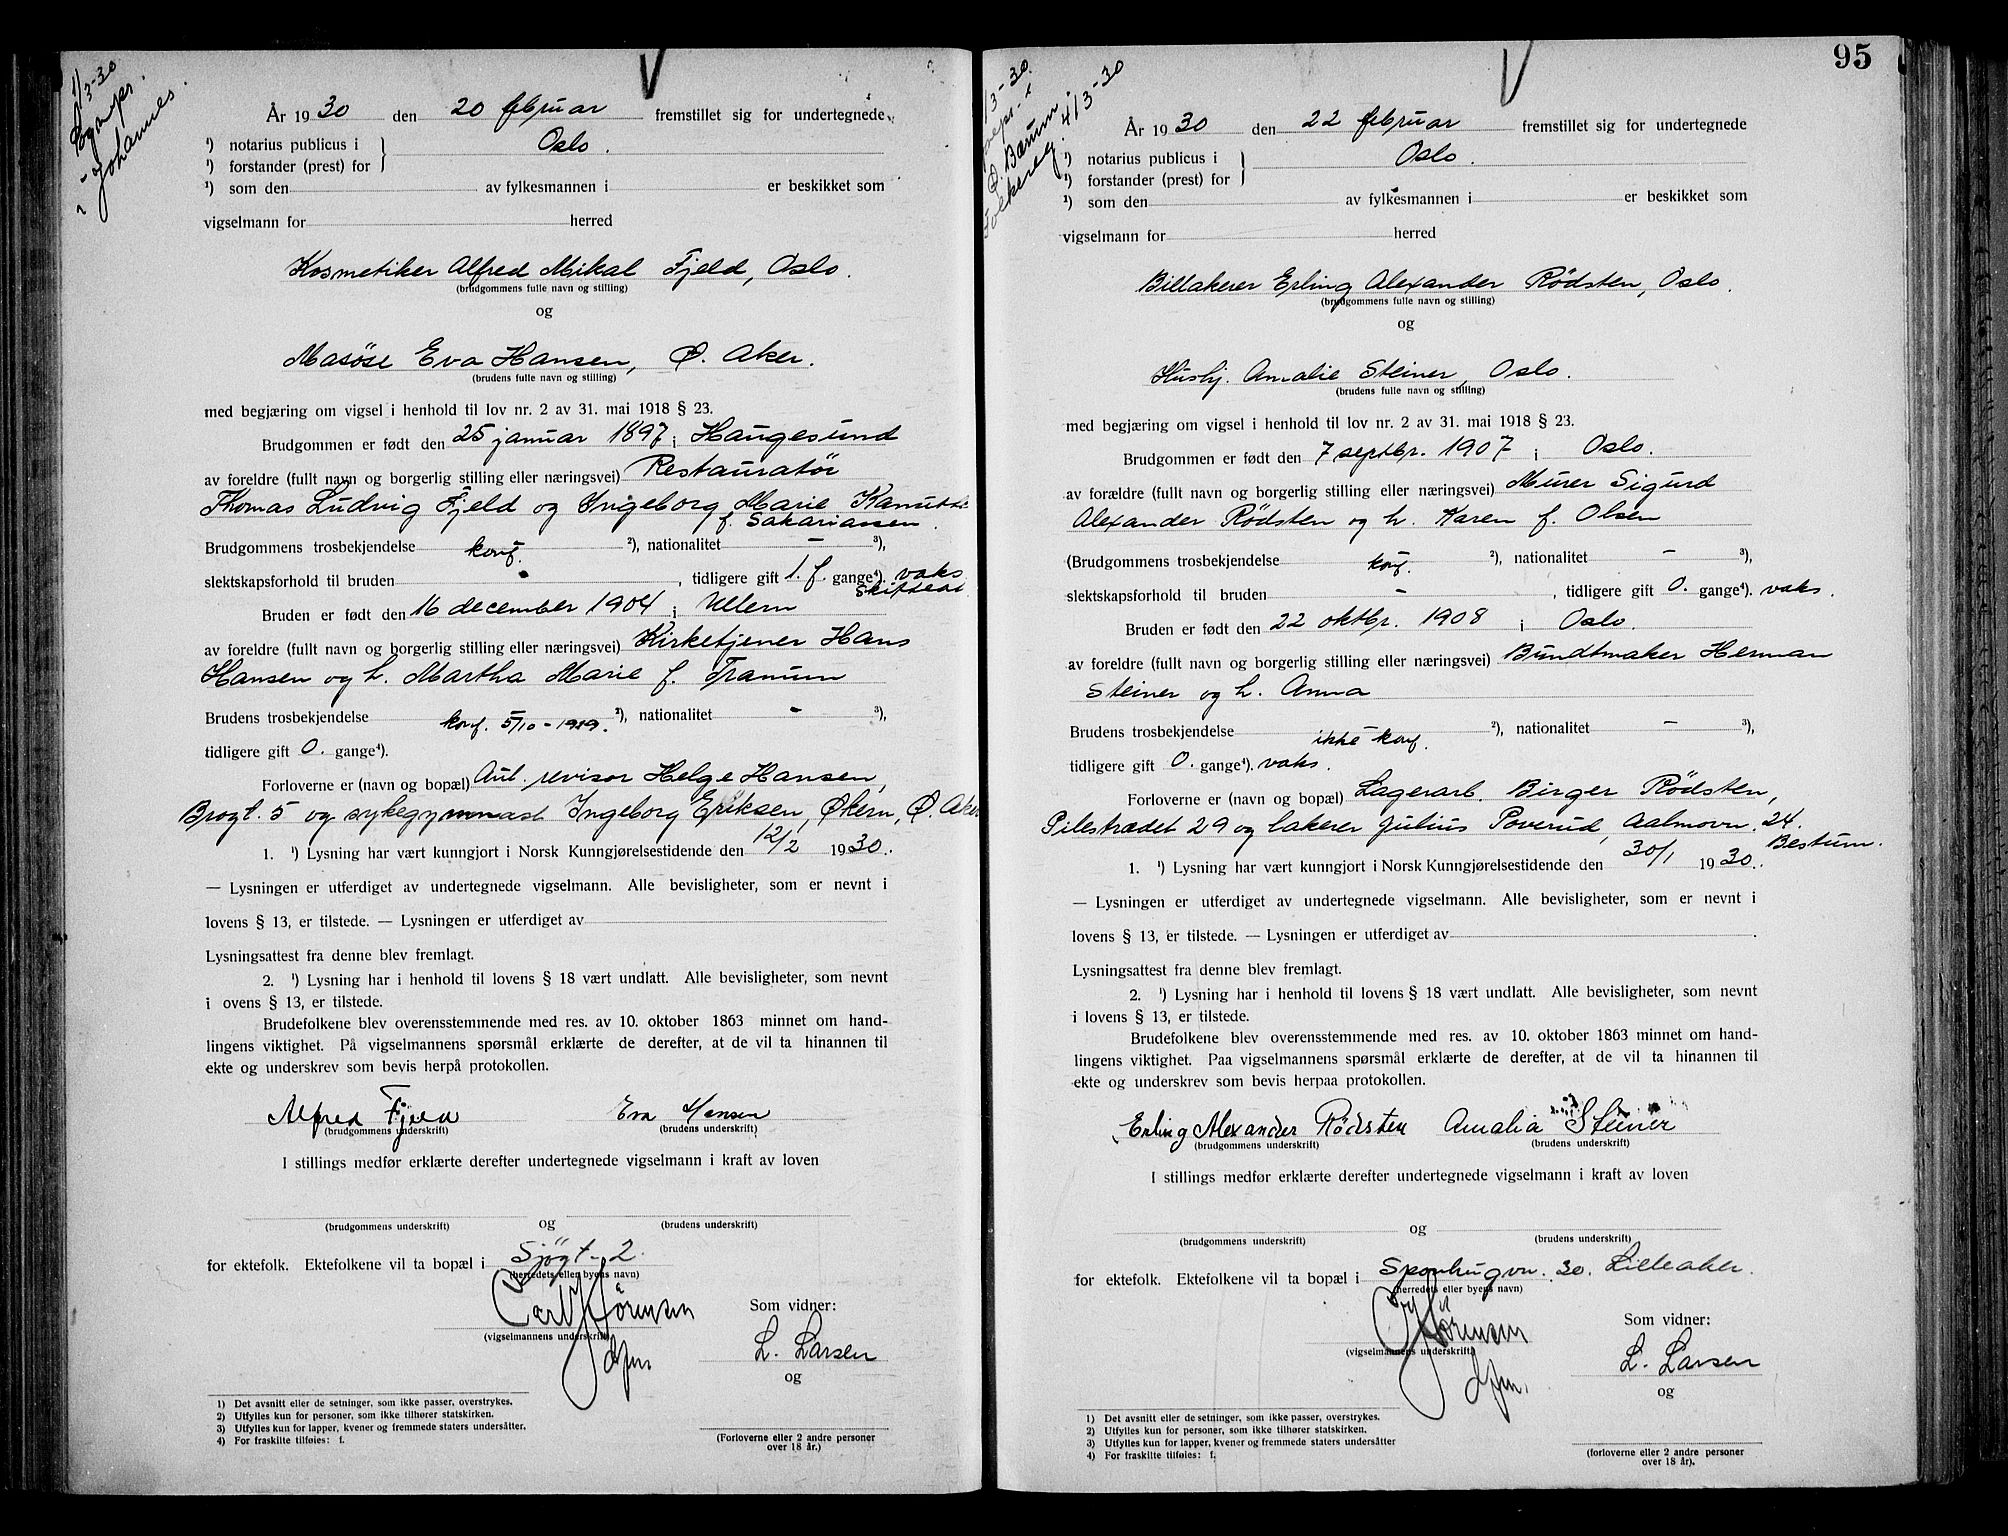 1/3-30
Johannes.
År 1930 den 20 februar fremstillet sig for undertegnede
¹) notarius publicus i
Oslo.
¹) forstander (prest) for
¹) som den av fylkesmannen i er beskikket som
vigselmann for herred
Kosmetiker Alfred Mikal Fjeld, Oslo.
(brudgommens fulle navn og stilling)
og
Masøse Eva Hansen, Ø. Aker.
(brudens fulle navn og stilling)
med begjæring om vigsel i henhold til lov nr. 2 av 31. mai 1918 § 23.
Brudgommen er født den 25 januar 1897 i Haugesund
av foreldre (fullt navn og borgerlig stilling eller næringsvei) Restauratør
Thomas Ludvig Fjeld og Ingeborg Marie Kanutte
f. Sakariassen.
Brudgommens trosbekjendelse konf. ²), nationalitet – ³),
slektskapsforhold til bruden , tidligere gift 1. f. gange⁴). vaks
skiftede
Bruden er født den 16 december 1904 i Ullern
av foreldre (fullt navn og borgerlig stilling eller næringsvei) Kirketjener Hans
Hansen og h. Martha Marie f. Tranum
Brudens trosbekjendelse konf. 5/10-1919. ²), nationalitet - ³),
tidligere gift 0. gange⁴).
Forloverne er (navn og bopæl) Aut. revisor Helge Hansen,
Brogt. 5 og sykegymnast Ingeborg Eriksen, Økern, Ø. Aker
1. ¹) Lysning har vært kunngjort i Norsk Kunngjørelsestidende den 12/2 1930.
— Lysningen er utferdiget av undertegnede vigselmann. Alle bevisligheter, som er nevnt i
lovens § 13, er tilstede. — Lysningen er utferdiget av
Lysningsattest fra denne blev fremlagt.
2. ¹) Lysning har i henhold til lovens § 18 vært undlatt. Alle bevisligheter, som nevnt
i ovens § 13, er tilstede.
Brudefolkene blev overensstemmende med res. av 10. oktober 1863 minnet om hand-
lingens viktighet. På vigselmannens spørsmål erklærte de derefter, at de vil ta hinannen til
ekte og underskrev som bevis herpå protokollen.
Alfred Fjeld Eva Hansen
(brudgommens underskrift) (brudens underskrift)
I stillings medfør erklærte derefter undertegnede vigselmann i kraft av loven
og
(brudgommens underskrift) (brudens underskrift)
for ektefolk. Ektefolkene vil ta bopæl i Sjøgt. 2.
(herredets eller byens navn)
Som vidner:
(vigselmannens underskrift)
L. Larsen
og
1) Det avsnitt eller de setninger, som ikke passer, overstrykes.
2) Utfylles kun for personer, som ikke tilhører statskirken.
3) Utfylles kun for lapper, kvener og fremmede staters undersåtter.
4) For fraskilte tilføies: f.
(Forloverne eller 2 andre personer
over 18 år.)
95
Ø. Bærum
4/3-30
År 1930 den 22 februar fremstillet sig for undertegnede
¹) notarius publicus i
Oslo.
¹) forstander (prest) for
¹) som den av fylkesmannen i er beskikket som
vigselmann for herred
Billakerer Erling Alexander Rødsten, Oslo.
(brudgommens fulle navn og stilling)
og
Hushj. Amalie Steiner, Oslo.
(brudens fulle navn og stilling)
med begjæring om vigsel i henhold til lov nr. 2 av 31. mai 1918 § 23.
Brudgommen er født den 7 septbr. 1907 i Oslo.
av forældre (fullt navn og borgerlig stilling eller næringsvei) Murer Sigurd
Alexander Rødsten og h. Karen f. Olsen
(Brudgommens trosbekjendelse konf. ²), nationalitet – ³),
slektskapsforhold til bruden – , tidligere gift 0. gange⁴). vaks.
Bruden er født den 22 oktbr. 1908 i Oslo.
av foreldre (fullt navn og borgerlig stilling eller næringsvei) Bundtmaker Herman
Steiner og h. Anna
Brudens trosbekjendelse ikke konf. ²), nationalitet – ³),
tidligere gift 0. gange⁴). vaks.
Forloverne er (navn og bopæl) Lagerarb. Birger Rødsten,
Pilestrædet 29 og lakerer Julius Poverud, Aalmovn. 24.
Bestum.
1. ¹) Lysning har vært kunngjort i Norsk Kunngjørelsestidende den 30/1 1930.
— Lysningen er utferdiget av undertegnede vigselmann. Alle bevisligheter, som er nevnt i
lovens § 13, er tilstede. — Lysningen er utferdiget av
Lysningsattest fra denne blev fremlagt.
2. ¹) Lysning har i henhold til lovens § 18 vært undlatt. Alle bevisligheter, som nevnt
i lovens § 13, er tilstede.
Brudefolkene blev overensstemmende med res. av 10. oktober 1863 minnet om hand-
lingens viktighet. Paa vigselmannens spørsmål erklærte de derefter, at de vil ta hinannen til
ekte og underskrev som bevis herpaa protokollen.
Erling Alexander Rødsten Amalia Steiner
(brudgommens underskrift) (brudens underskrift)
I stillings medfør erklærte derefter undertegnede vigselmann i kraft av loven
og
(brudgommens underskrift) (brudens underskrift)
for ektefolk. Ektefolkene vil ta bopæl i Sponhugvn. 30. Lilleaker.
(herredets eller byens navn)
Som vidner:
(vigselmannens underskrift)
L. Larsen
og
1) Det avsnitt eller de setninger, som ikke passer, overstrykes.
2) Utfylles kun for personer, som ikke tilhører statskirken.
3) Utfylles kun for lapper, kvener og fremmede staters undersåtter
4) For fraskilte tilføies: f.
(forloverne eller 2 andre personer
over 18 år).